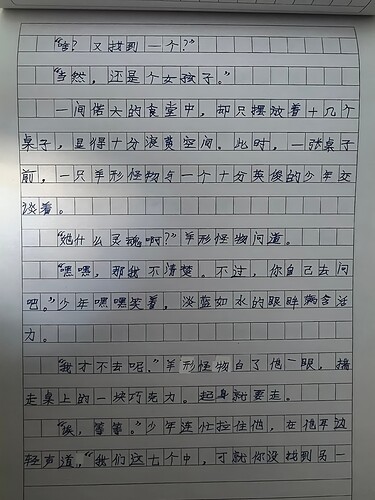 “哇？又找到一个？”
“当然，还是个女孩子。”
一间偌大的食堂中，却只摆放着十几个
桌子，显得十分浪费空间。此时，一张桌子
前，一只羊形怪物与一个十分英俊的少年交
谈着。
“她什么灵魂啊？”羊形怪物问道。
“嘿嘿，那我不清楚。不过，你自己去问
吧。”少年嘿嘿笑着，淡蓝如水的眼眸满含活
力。
“我才不去呢。”羊形怪物白了他一眼，揣
走桌上的一块巧克力。起身就要走。
“诶，等等。”少年连忙拉住他，在他耳边
轻声道，“我们这七个中，可就你没找到另一